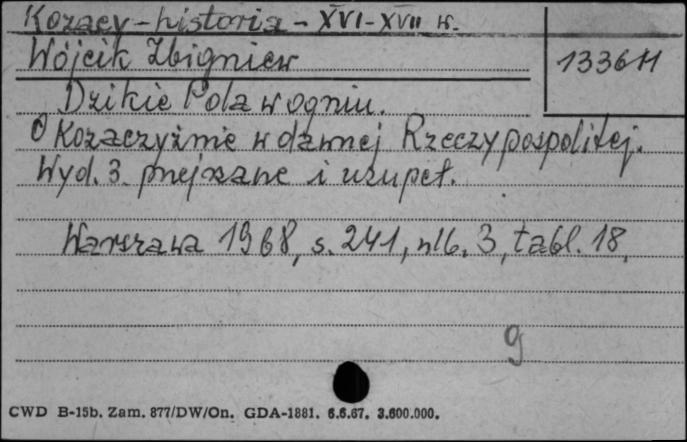 Kozacy - historia - XVI-XVII w.
Wójcik Zbigniew
1336 H
Dzikie Pola w ogniu.
O Kozaczyźnie w dawnej Rzeczypospolitej.
Wyd. 3. przejrzane i uzupeł.
Warszawa 1968, s. 241, nlb. 3, tabl. 18.
g
CWD B-15b. Zam. 877/DW/On. GDA-1881. 6.6.67. 3.600.000.